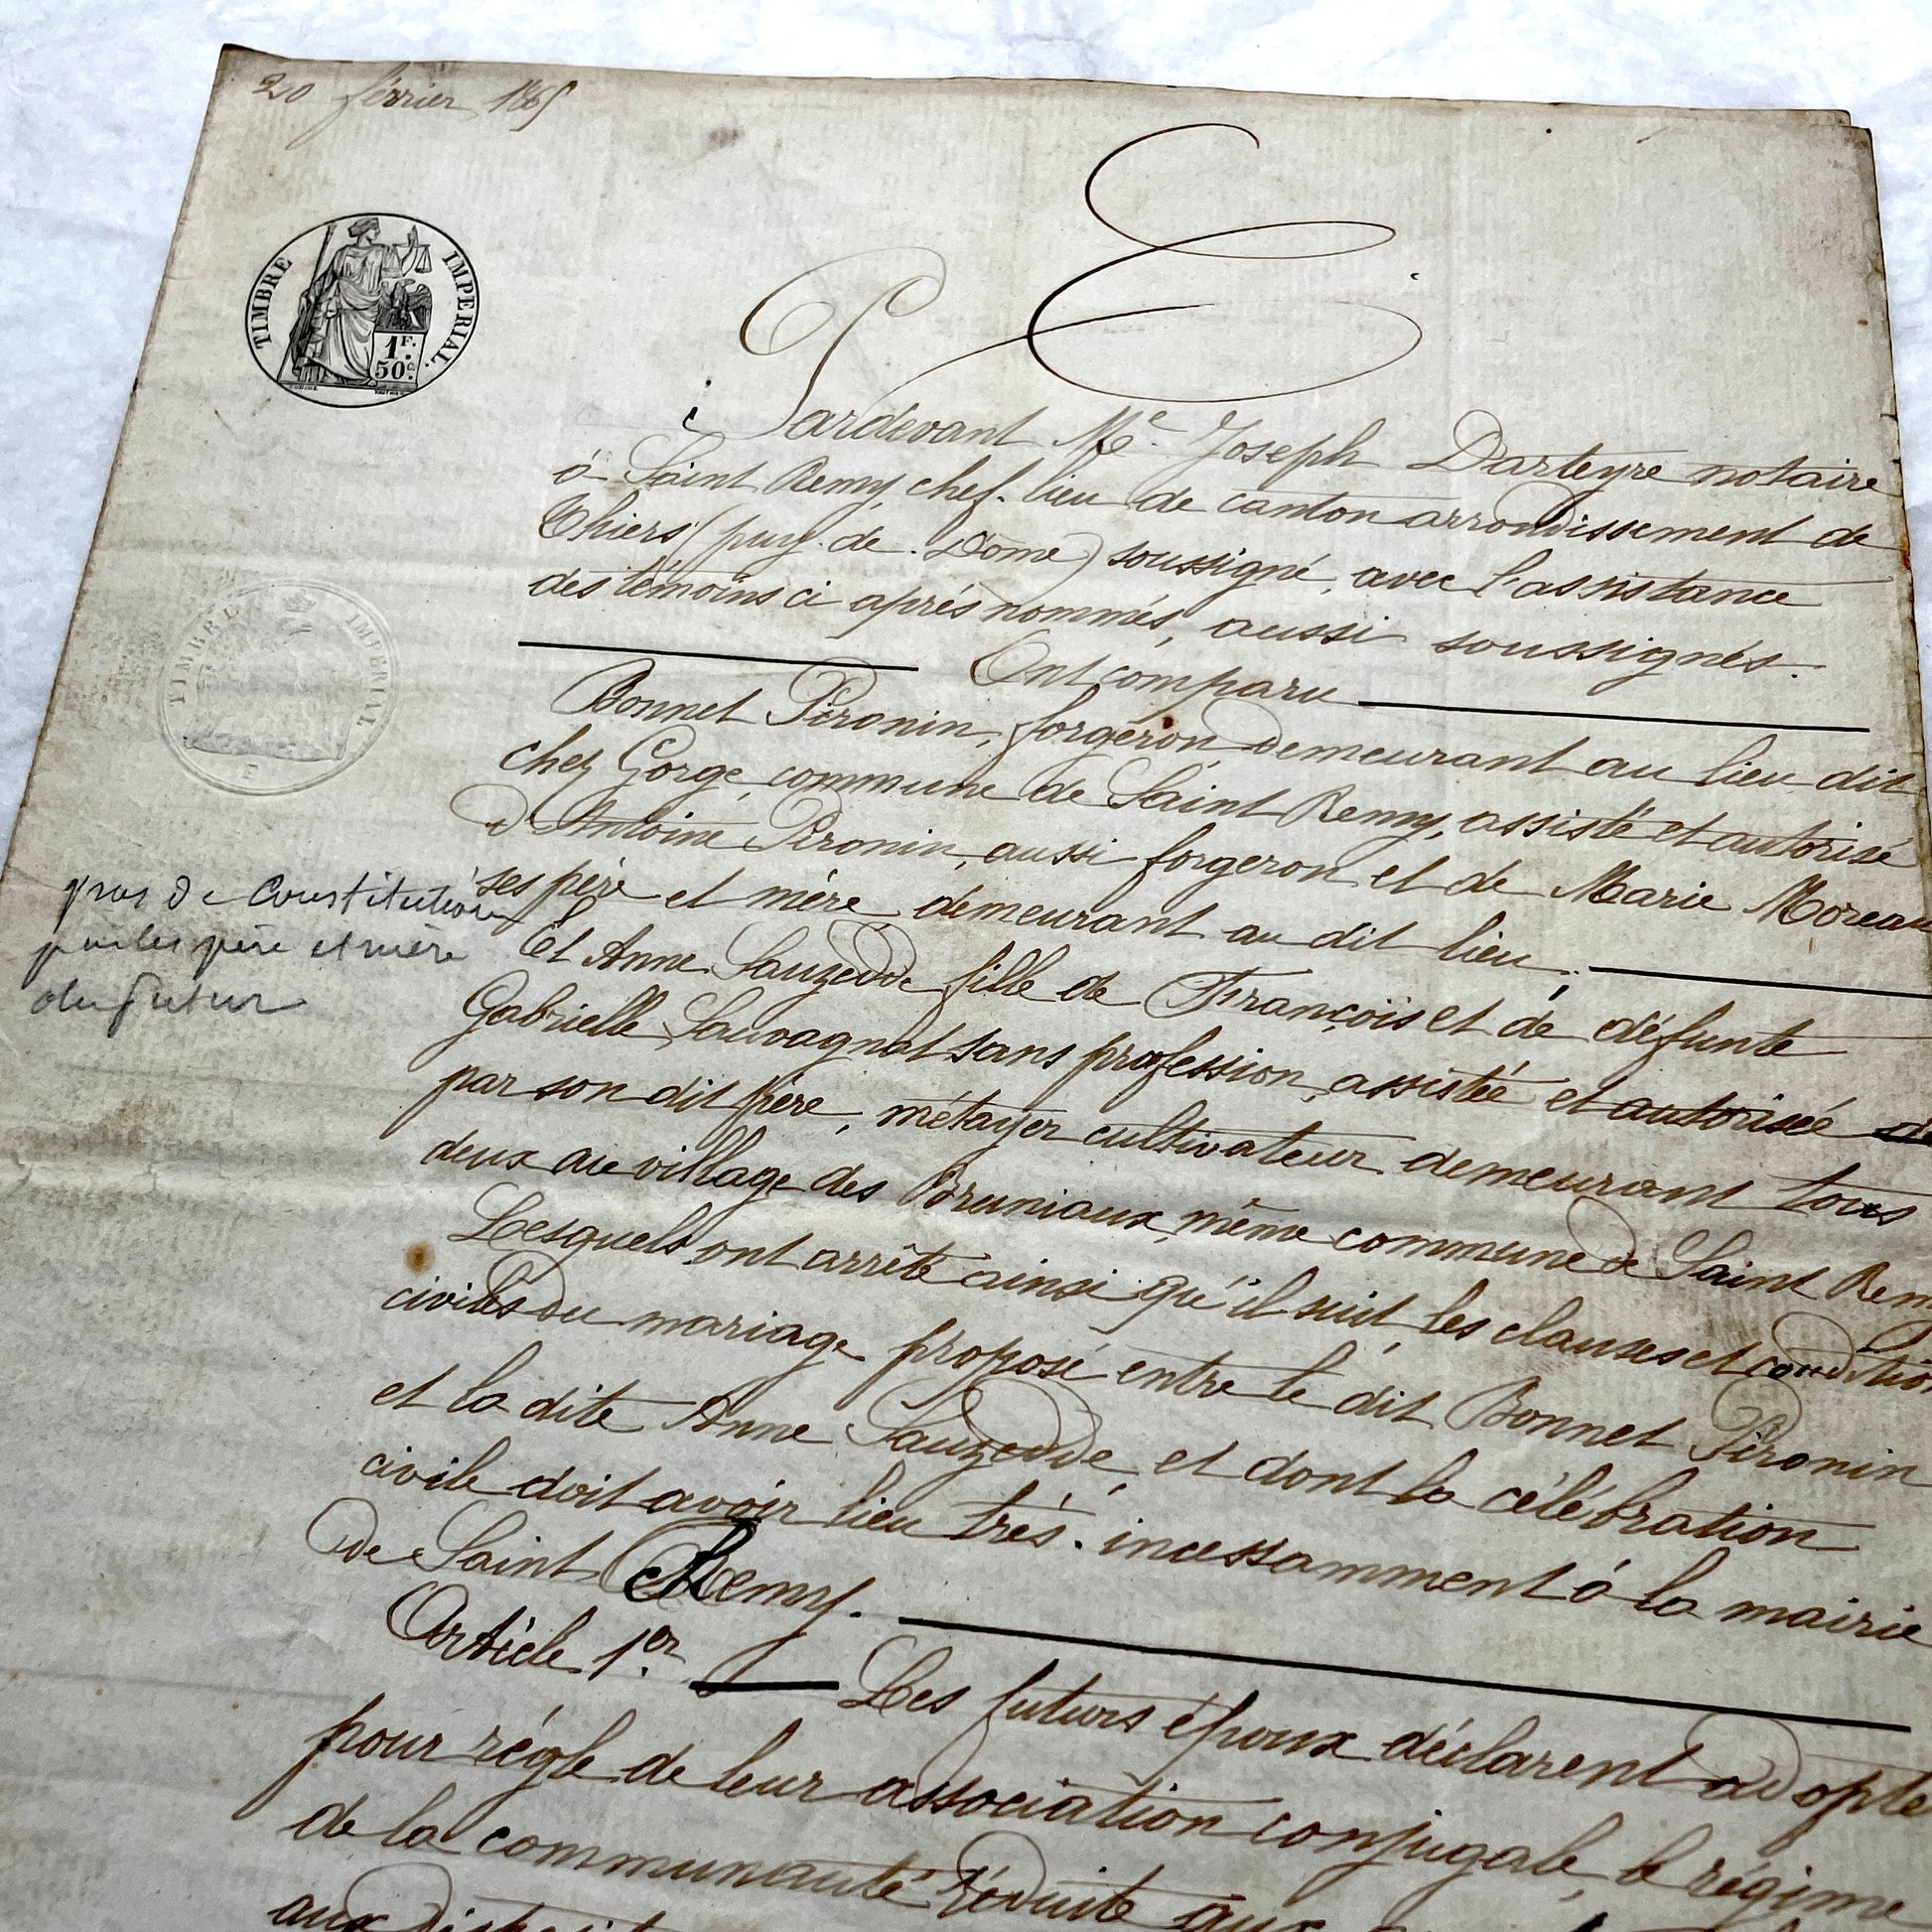 20 février 1865
TIMBRE IMPERIAL.
1F.
50c.
Pardevant Me. Joseph Darteyre notaire
à Saint Remy, chef-lieu de canton arrondissement de
Thiers (puy-de-Dôme) soussigné, avec l'assistance
des témoins ci après nommés, aussi soussignés.
Ont comparu
TIMBRE IMPERIAL
E
Bonnet Pironin, forgeron, demeurant au lieu dit
chez Gorge, commune de Saint Remy, assisté et autorisé
d'Antoine Pironin, aussi forgeron et de Marie Moreau
ses père et mère demeurant au dit lieu;
pas de Constitution
par les père et mère
du futur
Et Anne Sauzedde fille de François et de défunte
Gabrielle Sauvagnat sans profession, assistée et autorisée
par son dit père, métayer cultivateur demeurant tous
deux au village des Bruniaux, même commune de Saint Remy
Lesquels ont arrêté ainsi qu'il suit, les clauses et condition
civiles du mariage proposé entre le dit Bonnet Pironin
et la dite Anne Sauzedde, et dont la célébration
civile doit avoir lieu très-incessamment à la mairie
de Saint Remy.
Article 1er. Les futurs époux déclarent adopte
pour règle de leur association conjugale, le régime
de la communauté réduite aux
aux